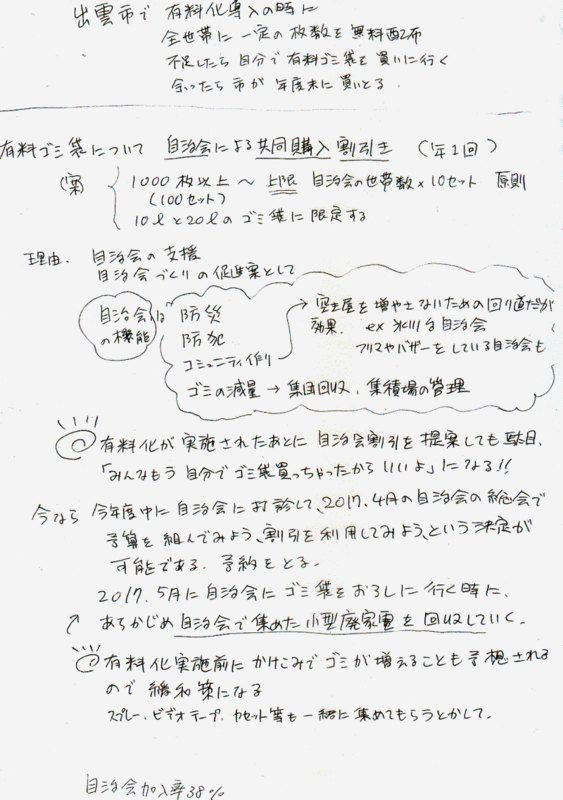 出雲市で 有料化導入の時に
全世帯に 一定の枚数を無料配布
不足したら自分で有料ゴミ袋を買いに行く
余ったら市が年度末に買いとる.
有料ゴミ袋について 自治会による共同購入割引き (年1回)
(案) 1000枚以上～上限 自治会の世帯数×10セット 原則
(100セット)
10ℓと20ℓのゴミ袋に限定する
理由. 自治会の支援
自治会づくりの促進策として
自治会の機能
防災
防犯
コミュニティ作り → 空き家を増やさないための回り道だが
効果. ex 氷川台自治会
フリマやバザーをしている自治会も
ゴミの減量 → 集団回収、集積場の管理
有料化が実施されたあとに自治会割引を提案しても駄目.
「みんなもう自分でゴミ袋買っちゃったからいいよ」になる!!
今なら 今年度中に自治会に打診して、2017.4月の自治会の総会で
予算を組んでみよう、割引を利用してみよう、という決定が
可能である. 予約をとる.
2017.5月に自治会にゴミ袋をおろしに行く時に、
↗ あらかじめ自治会で集めた小型廃家電を回収していく.
有料化実施前にかけこみでゴミが増えることも予想される
ので 緩和策になる
スプレー.ビデオテープ.カセット等も一緒に集めてもらうとかして.
自治会加入率38%